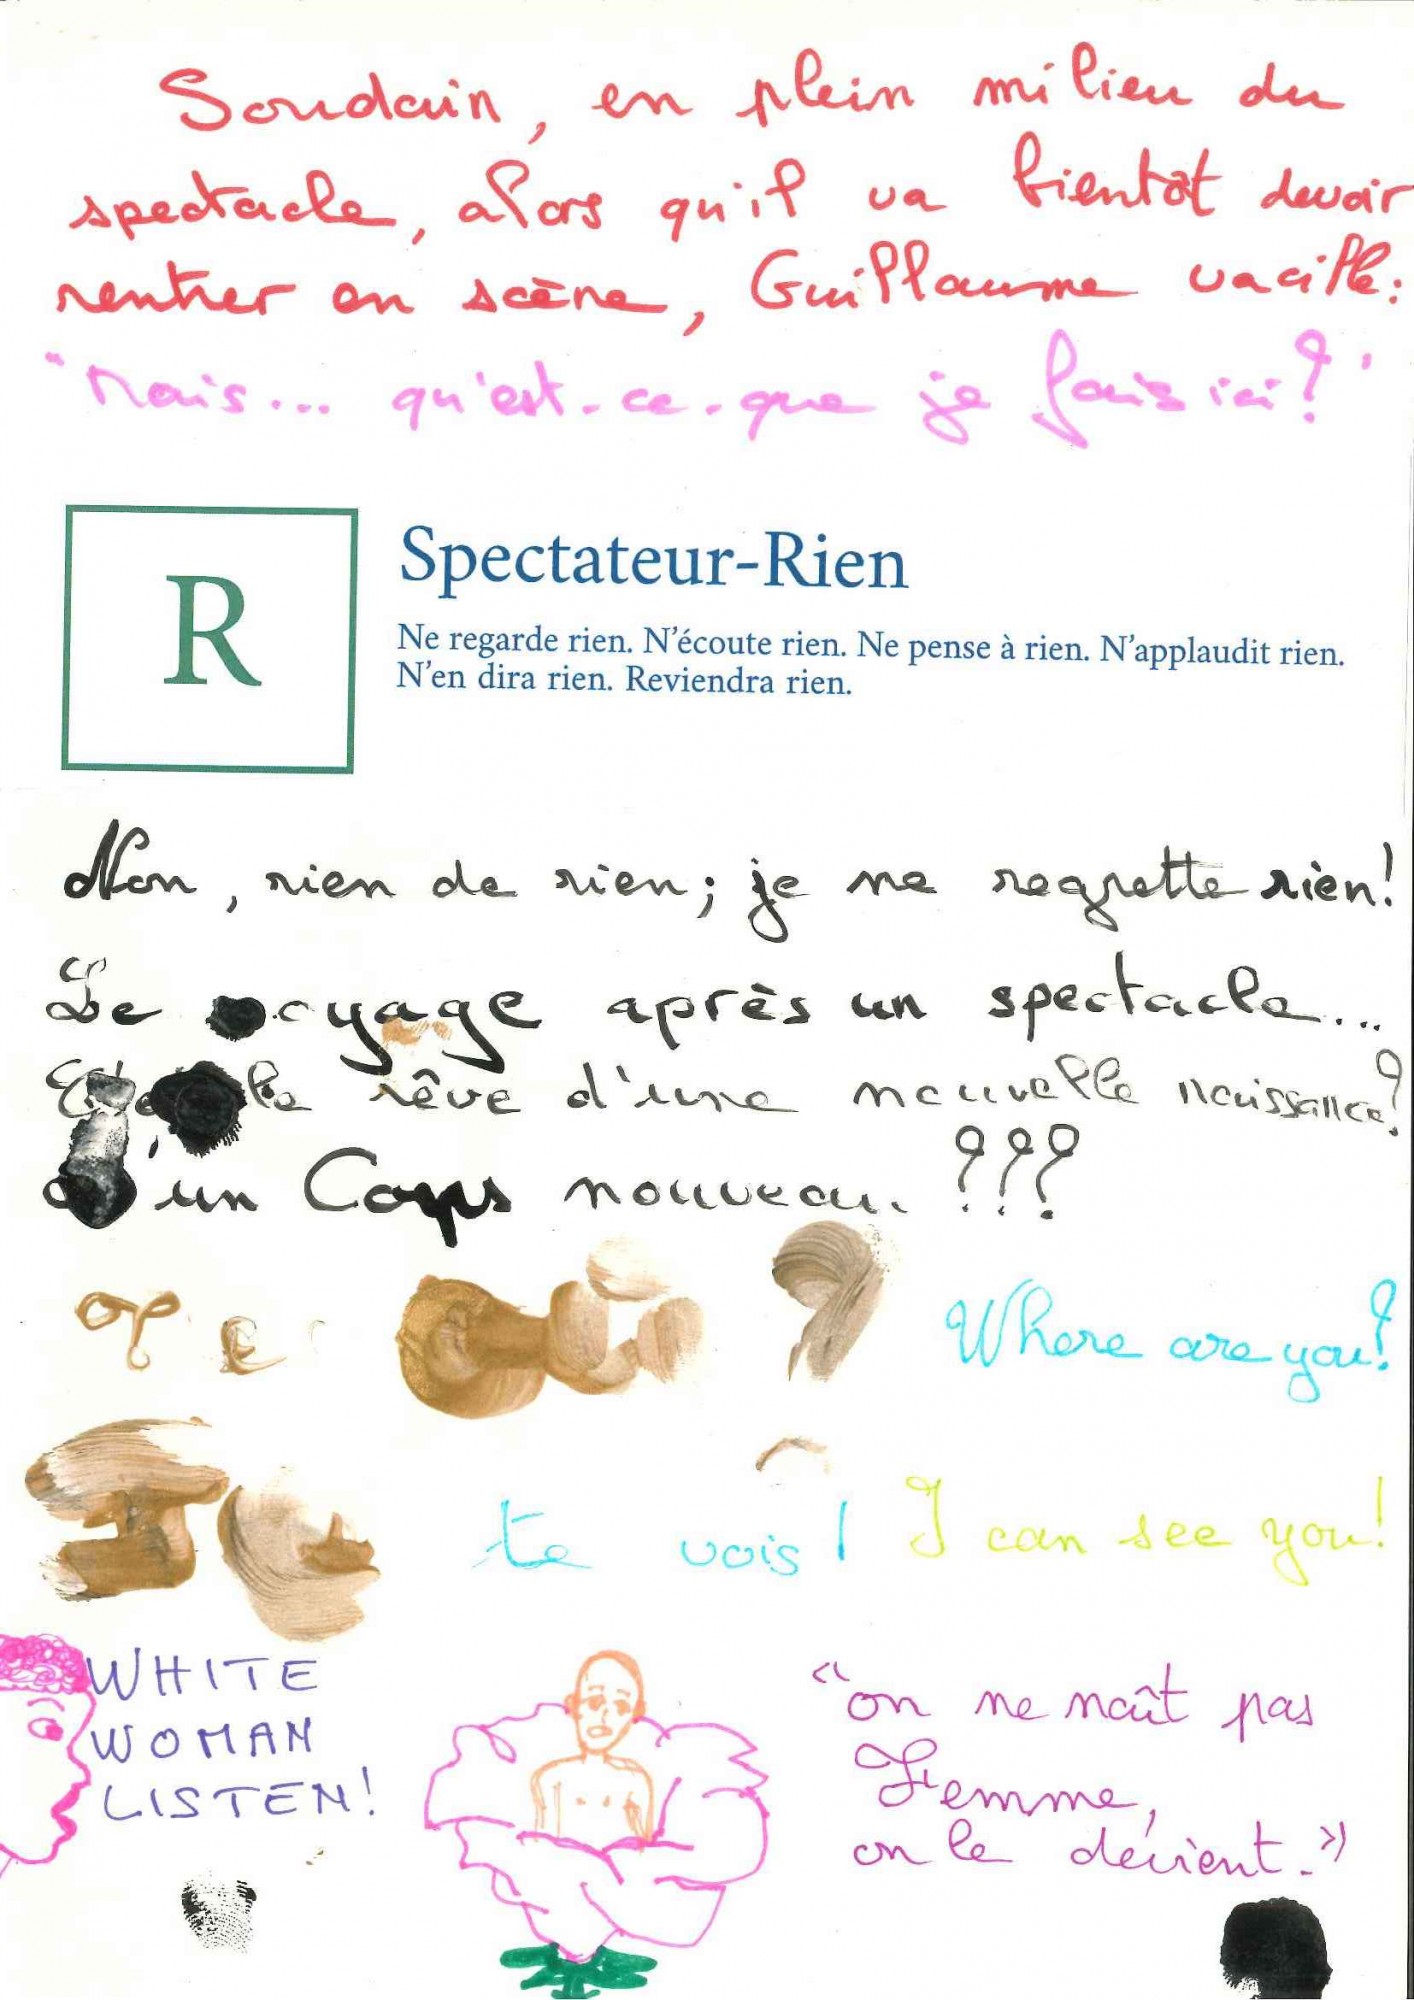 Soudain, en plein milieu du
spectacle, alors qu'il va bientôt devoir
rentrer en scène, Guillaume vacille:
"Mais... qu'est-ce-que je fais ici?"
R
Spectateur-Rien
Ne regarde rien. N'écoute rien. Ne pense à rien. N'applaudit rien.
N'en dira rien. Reviendra rien.
Non, rien de rien; je ne regrette rien!
Le voyage après un spectacle...
le rêve d'une nouvelle naissance?
d'un Corps nouveau. ???
Where are you?
te vois! I can see you!
WHITE
WOMAN
LISTEN!
"on ne naît pas
Femme,
on le devient.»